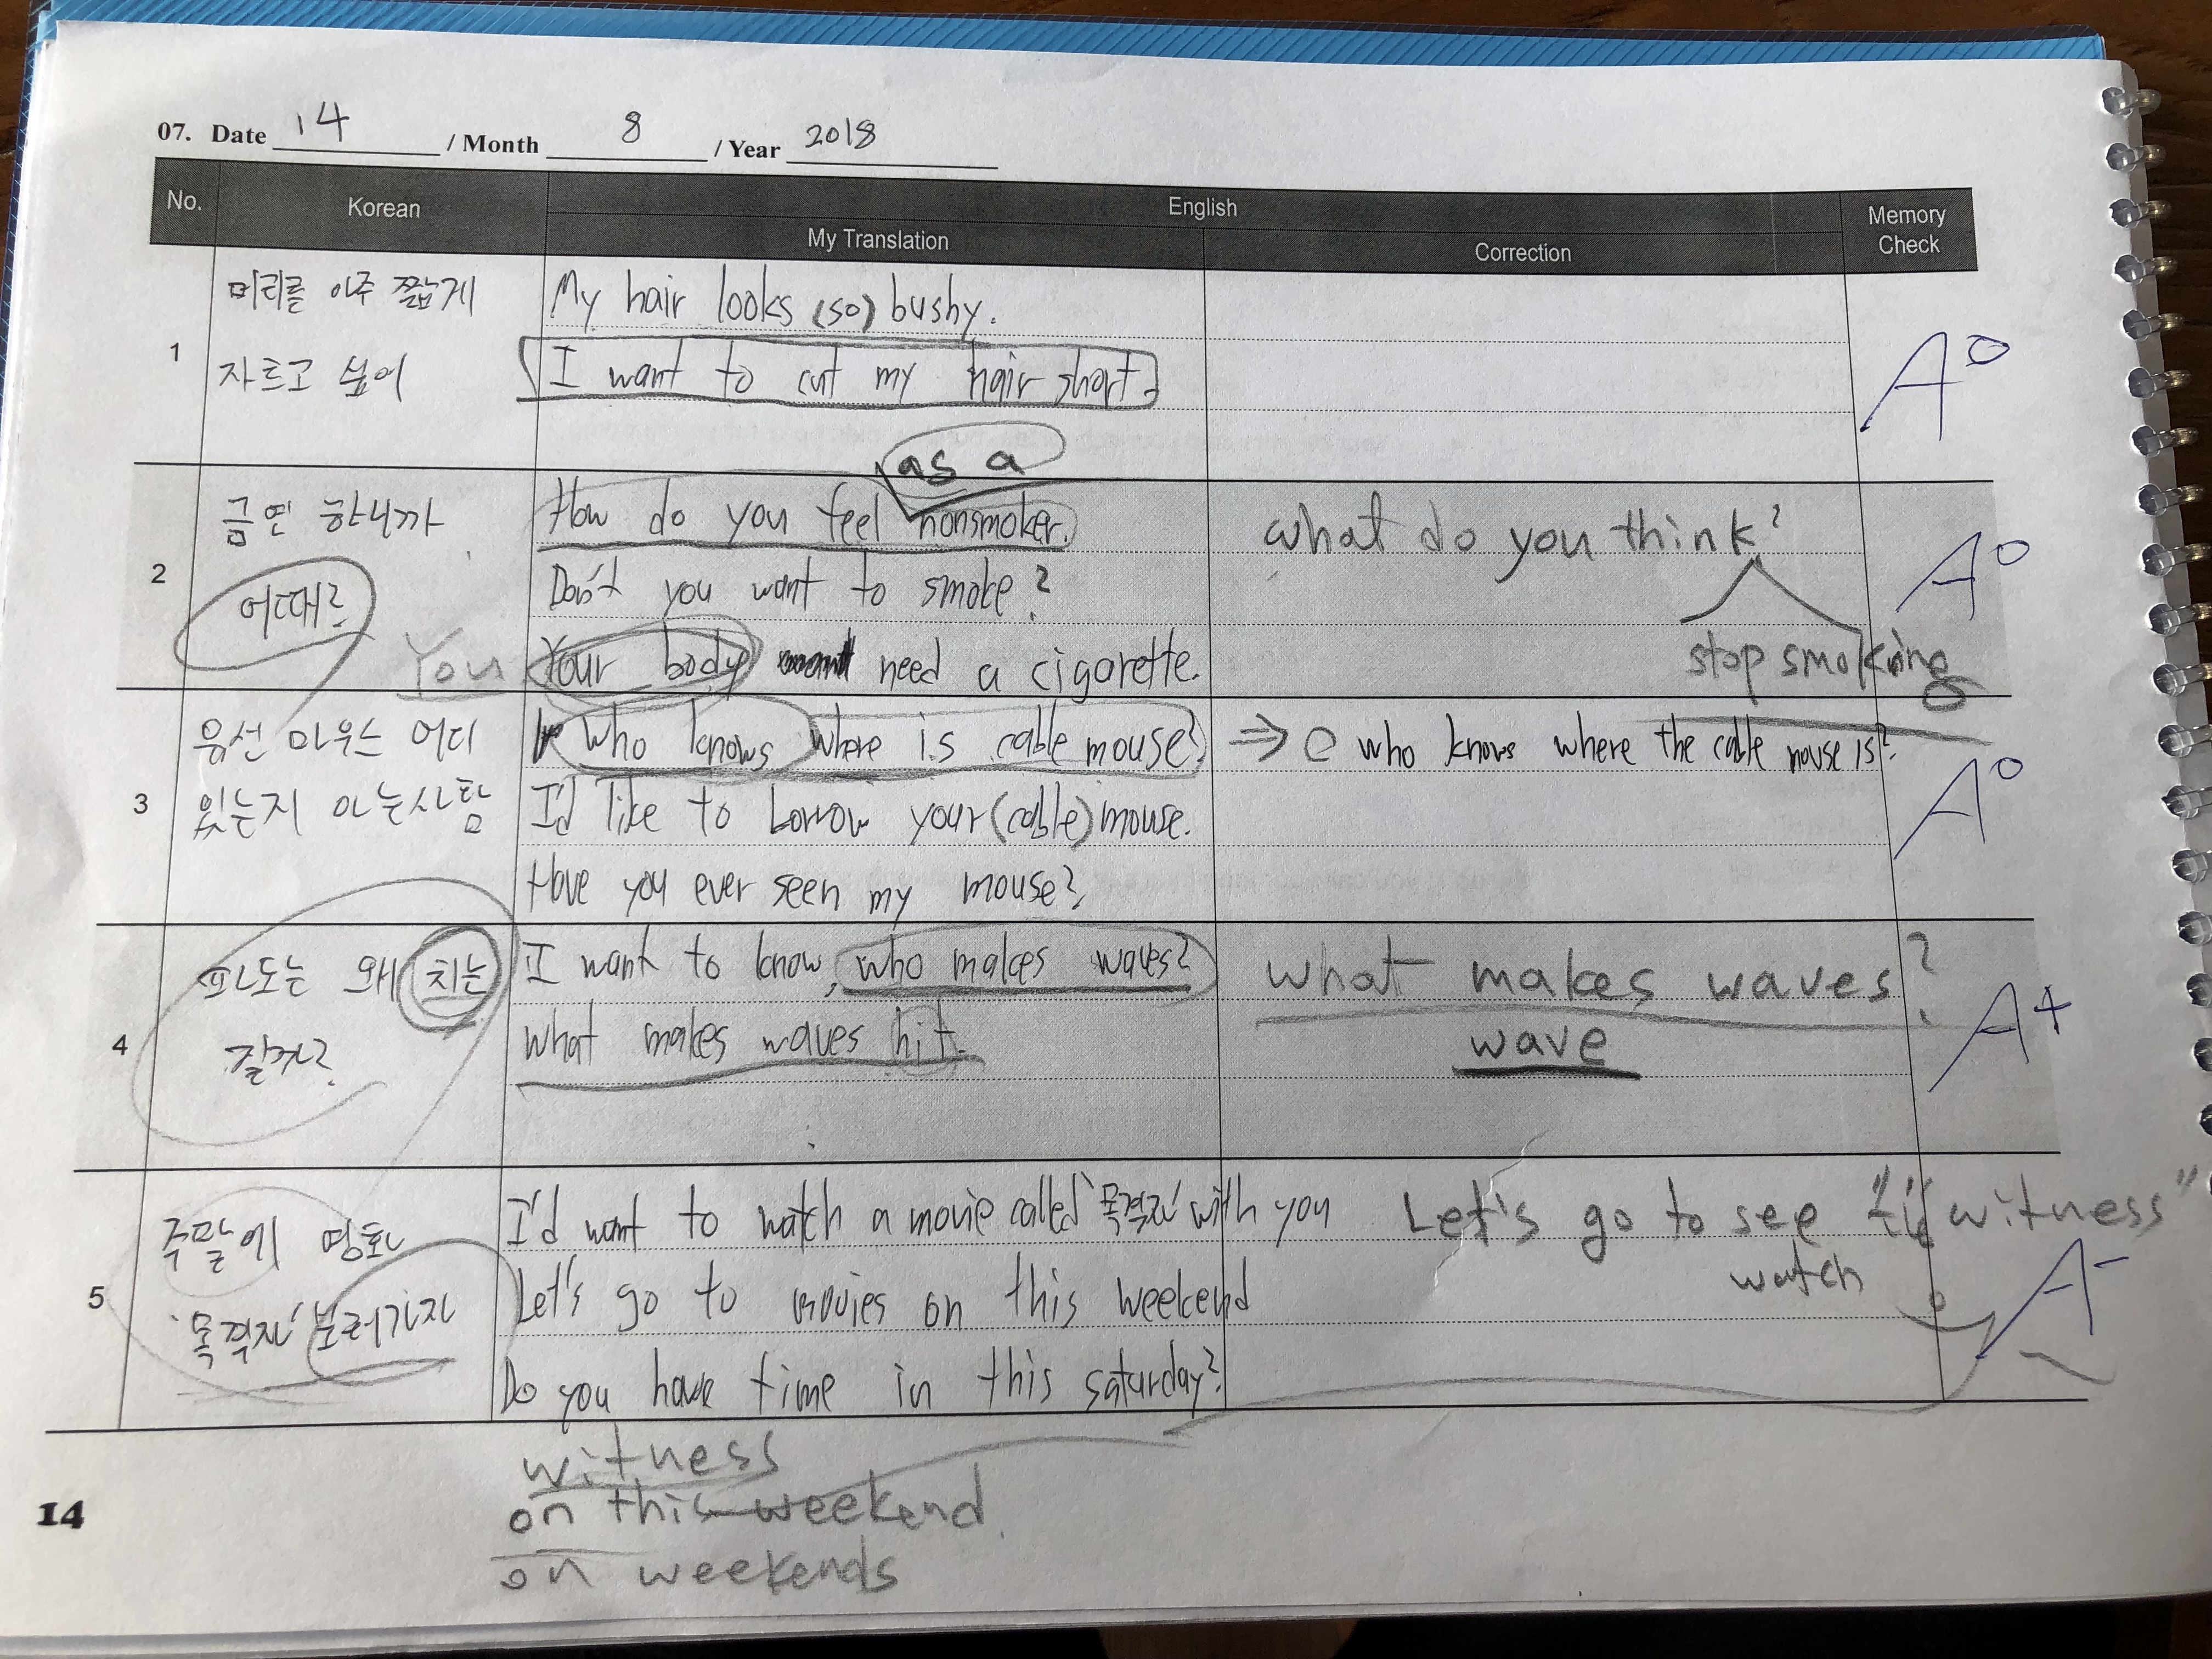 07. Date 14 / Month 8 / Year 2018
No. Korean English Memory Check
My Translation Correction
1
머리를 아주 짧게
자르고 싶어
My hair looks (so) bushy.
I want to cut my hair short.
A0
2
금연 하니까
어때?
as a
How do you feel nonsmoker.
Don't you want to smoke?
You
Your body need a cigarette.
what do you think?
stop smoking
A0
3
유선 마우스 어디
있는지 아는사람
who knows where is cable mouse?
I'd like to borrow your (cable) mouse.
Have you ever seen my mouse?
⇒ who knows where the cable mouse is?
A0
4
파도는 왜 치는
걸까?
I want to know, who makes waves?
what makes waves hit.
what makes waves?
wave
A+
5
주말에 영화
'목격자' 보러가자
I'd want to watch a movie called '목격자' with you
Let's go to movies on this weekend
Do you have time in this saturday?
Let's go to see " witness"
watch
A-
witness
on this weekend.
on weekends
14